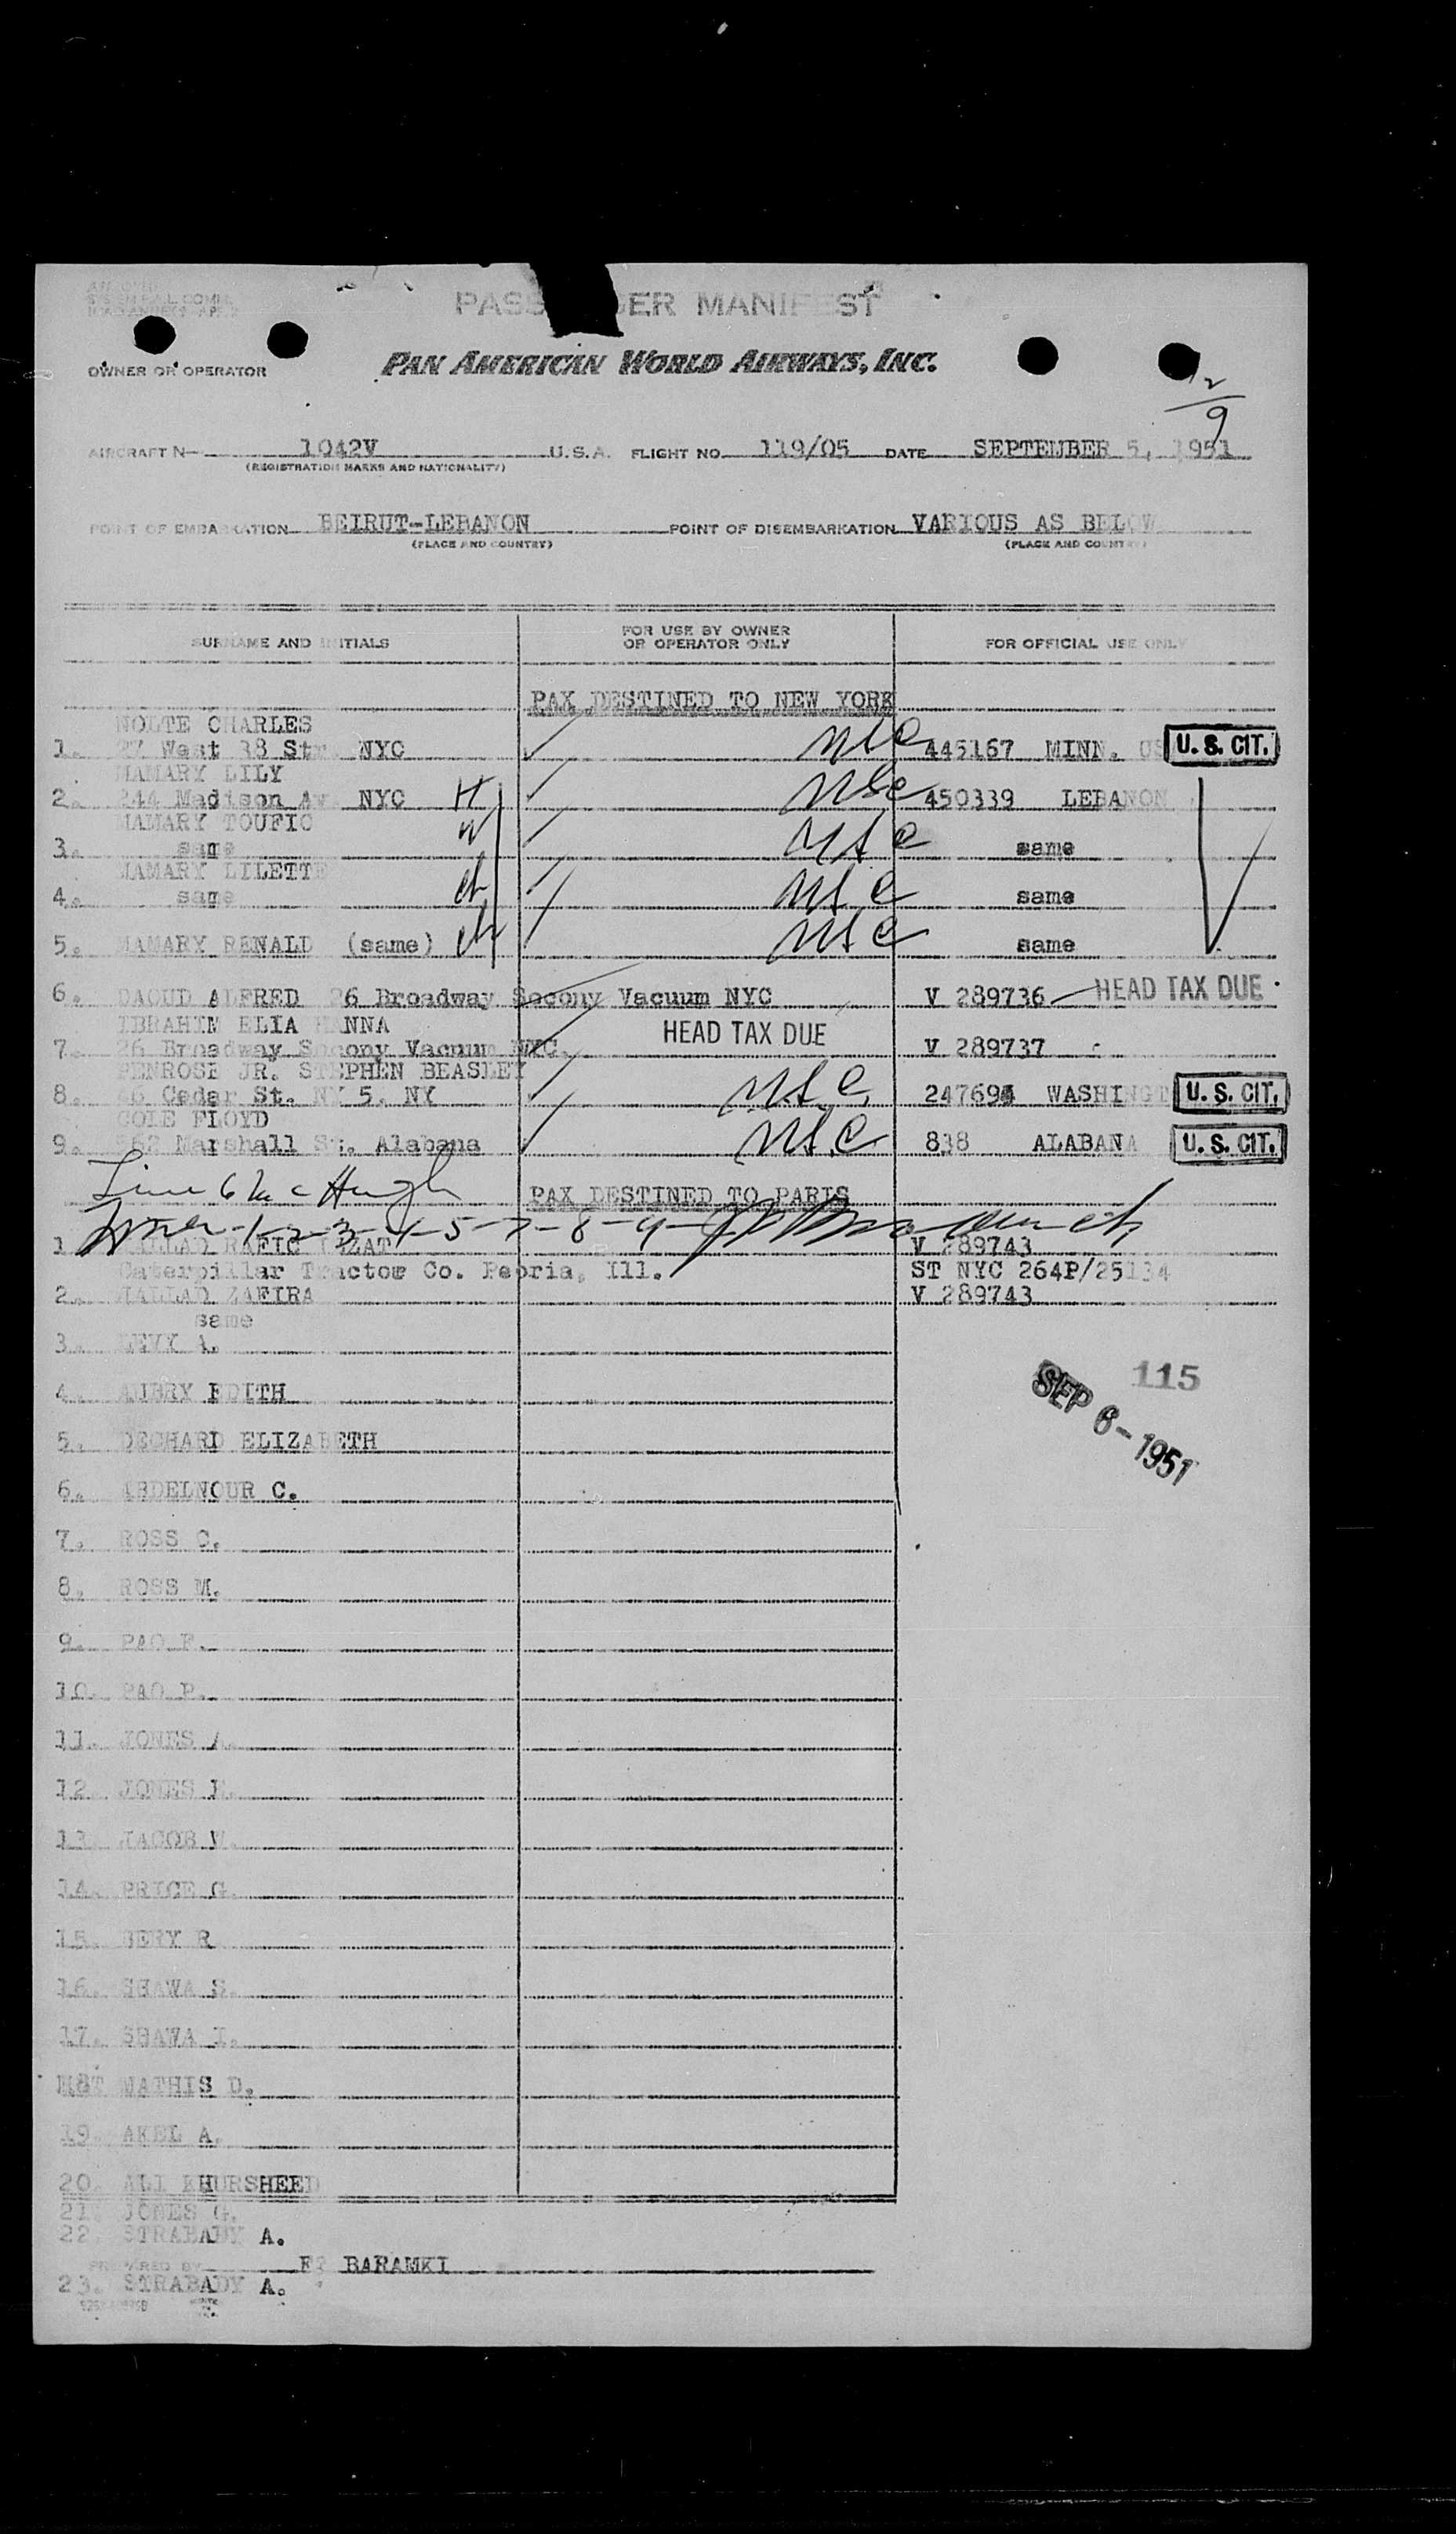 PASSENGER MANIFEST
OWNER OR OPERATOR PAN AMERICAN WORLD AIRWAYS, INC.
12/9
AIRCRAFT N— 1042V U.S.A. FLIGHT NO. 119/05 DATE SEPTEMBER 5, 1951
(REGISTRATION MARKS AND NATIONALITY)
POINT OF EMBARKATION BEIRUT-LEBANON POINT OF DISEMBARKATION VARIOUS AS BELOW
(PLACE AND COUNTRY) (PLACE AND COUNTRY)
SURNAME AND INITIALS FOR USE BY OWNER OR OPERATOR ONLY FOR OFFICIAL USE ONLY
PAX DESTINED TO NEW YORK
NOLTE CHARLES
1. 27 West 38 Str. NYC nsc 445167 MINN. US U. S. CIT.
MAMARY LILY
2. 244 Madison Av NYC H nsc 450339 LEBANON
MAMARY TOUFIC
3. same W nsc same
MAMARY LILETTE
4. same ch nsc same
5. MAMARY RENALD (same) ch nsc same
6. DAOUD ALFRED 26 Broadway Socony Vacuum NYC V 289736 HEAD TAX DUE
IBRAHIM ELIA HANNA HEAD TAX DUE
7. 26 Broadway Socony Vacuum NYC. V 289737
PENROSE JR. STEPHEN BEASLEY
8. 46 Cedar St. NY 5. NY nsc 247694 WASHINGT U. S. CIT.
COLE FLOYD
9. 562 Marshall St. Alabana nsc 838 ALABANA U. S. CIT.
Line 6 McHugh PAX DESTINED TO PARIS
1-2-3-4-5-7-8-9-
1. RAFIC IZZAT V 289743
Caterpillar Tractor Co. Peoria, Ill. ST NYC 264P/25134
2. MALLAD ZAFIRA V 289743
same
3. LEVY A.
4. AUBRY EDITH
115
SEP 6-1951
5. DECHARD ELIZABETH
6. ABDELNOUR C.
7. ROSS C.
8. ROSS M.
9. PAO F.
10. PAO P.
11. JONES A.
12. JONES E.
13. JACOB V.
14. PRICE G.
15. BERY R
16. SHAWA S.
17. SHAWA I.
MATHIS D.
19. AKEL A.
20. ALI KHURSHEED
21. JONES G.
22. STRABADY A.
PREPARED BY F? BARAMKI
23. STRABADY A.